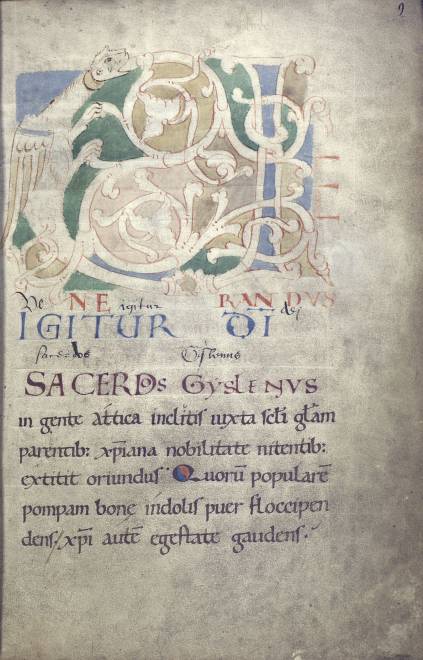 9
VENERANDUS
Ve igitur dei
IGITUR D̅I
sacerdos Gislenus
SACERDOS GYSLENVS
in gente attica inclitis iuxta sc̅li gl̅am
parentib: xp̅iana nobilitate nitentib:
extitit oriundus. Quorū popularē
pompam bone indolis puer floccipen
dens/ xp̅i autē egestate gaudens.